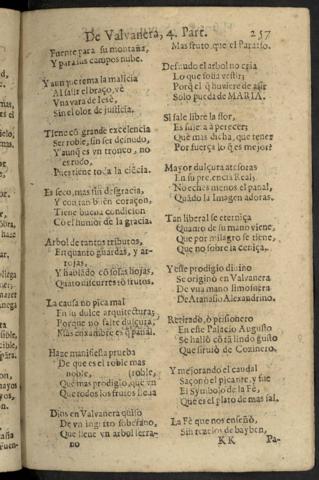 De Valvanera, 4. Part. 257
Fuente para su montaña,
Y para sus campos nube.
Y aunque tema la malicia
Al salir el braço, vè
Vna vara de Iesè,
Sin el olor de justicia.
Tiene cõ grande excelencia
Ser roble, sin ser desnudo,
Y aunq̃ es vn tronco, no
es rudo,
Pues tiene toda la ciẽcia.
Es seco, mas sin desgracia,
Y con tan buen coraçon,
Tiene buena condicion
Cõ el humor de la gracia.
Arbol de tantos tributos,
En quanto guardas, y ar-
rojas,
Y hablãdo cõ solas hojas,
Quãto discurres tõ frutos.
La causa no pica mal
En su dulce arquitectura,
Porque no falte dulçura,
Mas enxambre es q̃ panal.
Haze manifiesta prueba
De que es el roble mas
noble, (roble,
Què mas prodigio, que vn
Que todos los frutos lleva
Dios en Valvanera quiso
De vn ingirto soberano,
Que lleve vn arbol serra-
no
Mas fruto, que el Paraiso.
Desnudo el arbol no cria
Lo que solia vestir;
Porq̃ el q̃ huviere de asir
Solo pueda de MARIA.
Si sale libre la flor,
Es sugeta à perecer;
Què mas dicha, que tener
Por fuerça lo q̃ es mejor?
Mayor dulçura atesoras
En su presencia Real;
No eches menos el panal,
Quãdo la Imagen adoras.
Tan liberal se eterniça
Quanto de su mano viene,
Que por milagro se tiene,
Que no sobre la ceniça.
Y este prodigio divino
Se originò en Valvanera
De vna mano limosnera
De Atanasio Alexandrino.
Retirado, ò prisionero
En este Palacio Augusto
Se hallò cõ tã lindo gusto
Que sirviò de Cozinero.
Y mejorando el caudal
Saçonò el picante, y fue
El Symbolo de la Fè,
Que es el plato de mas sal.
La Fè que nos enseñò,
Sin
KK Pa-